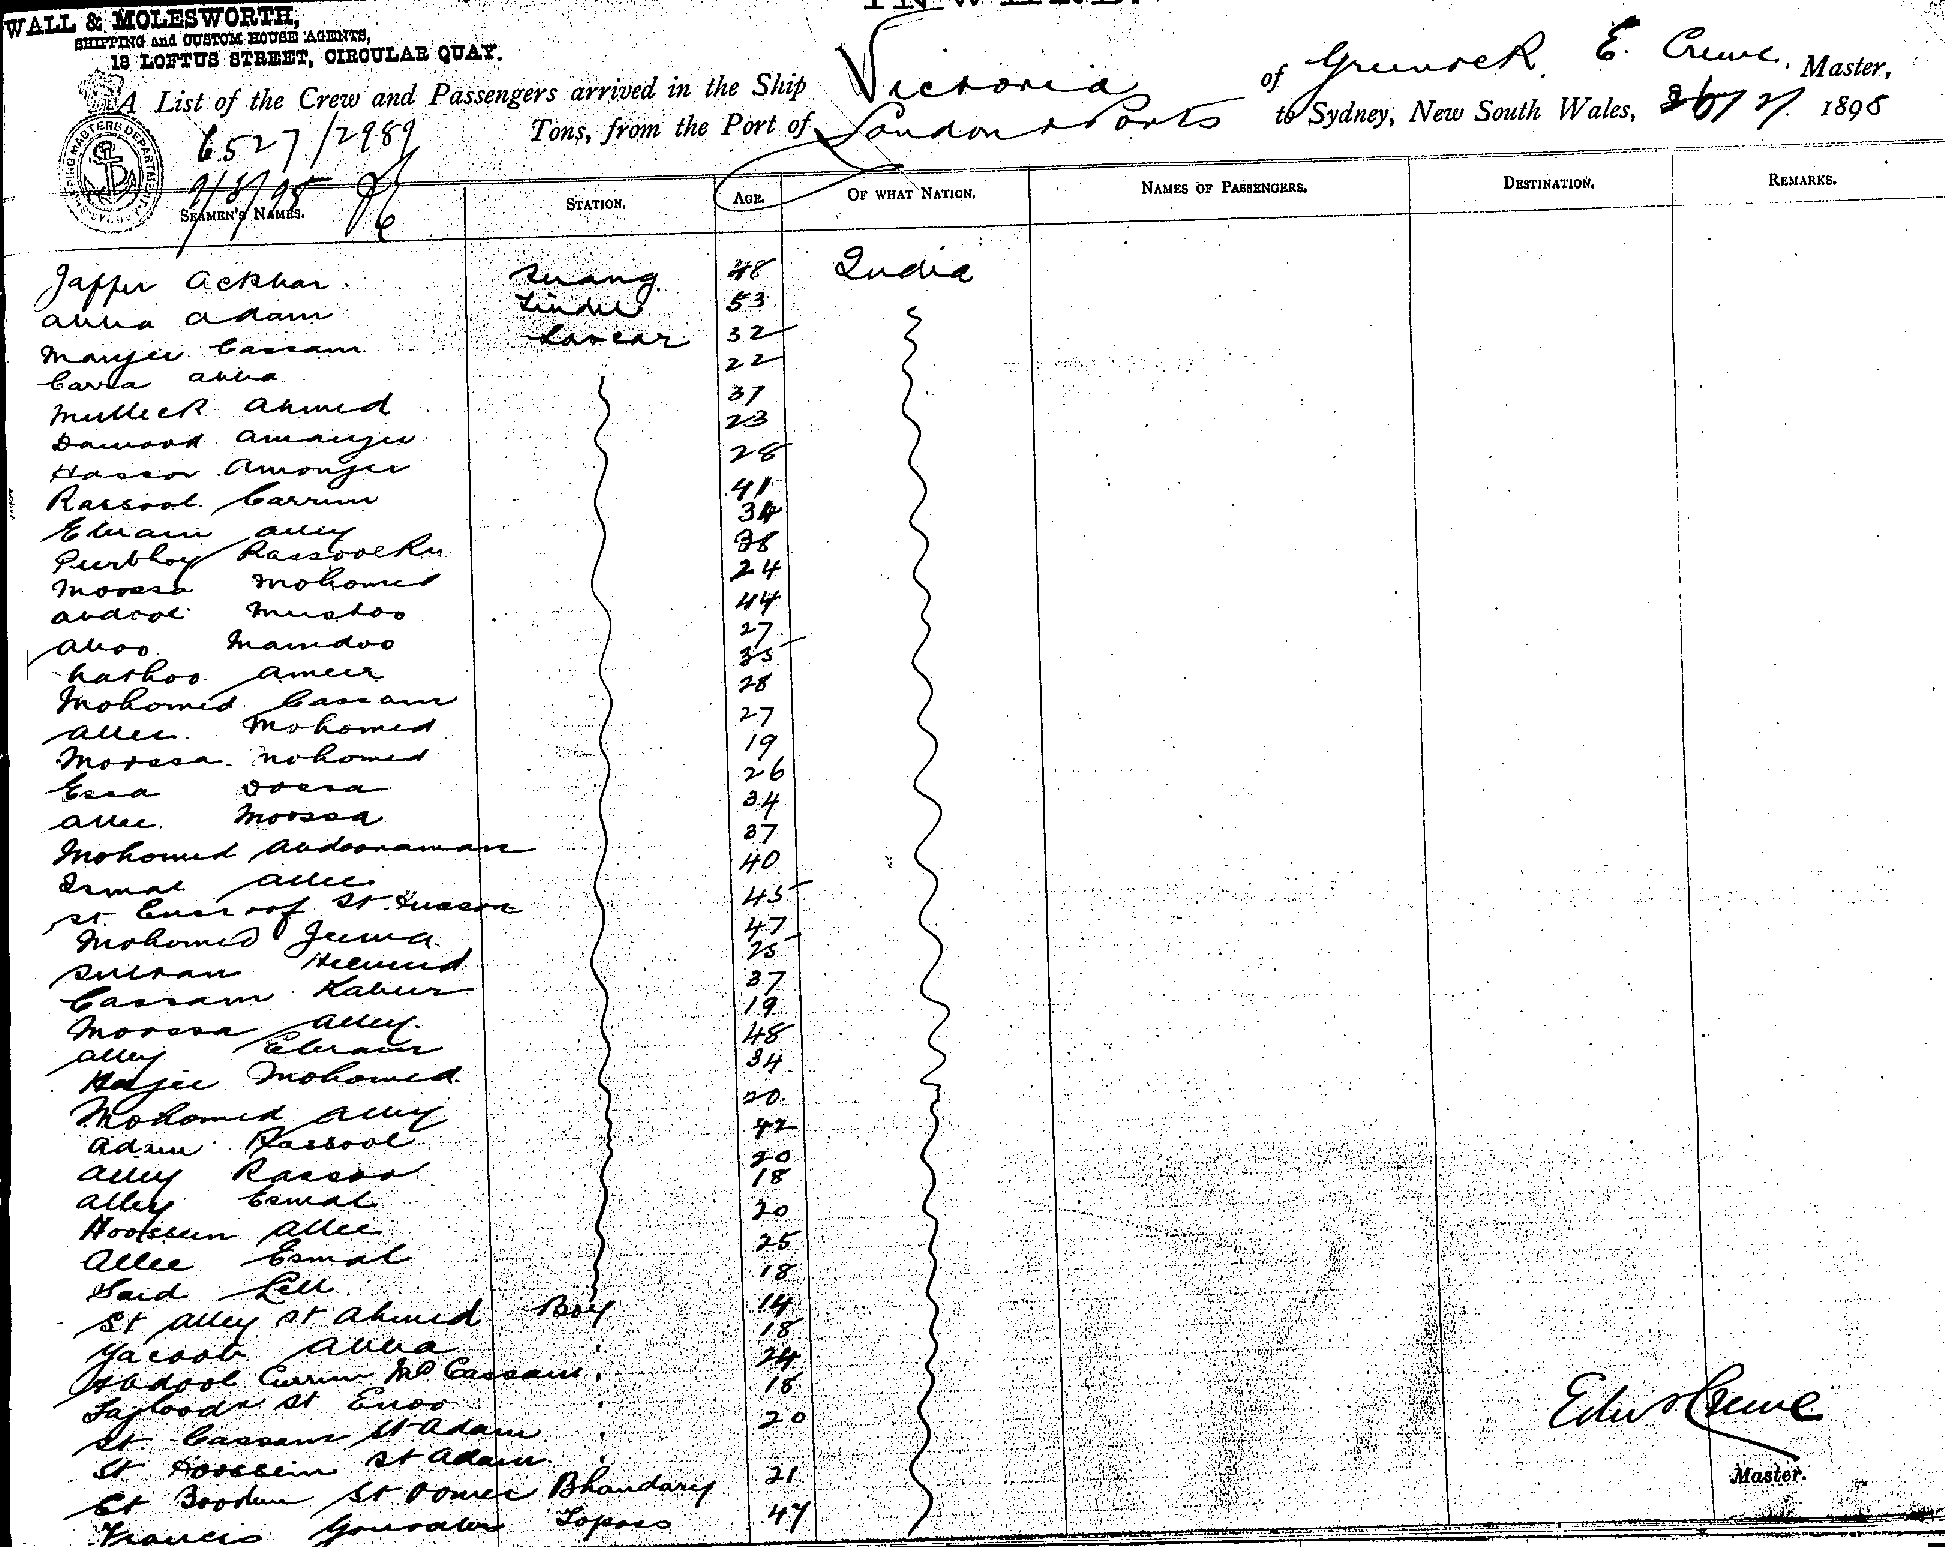 WALL & MOLESWORTH,
SHIPPING and CUSTOM HOUSE AGENTS,
18 LOFTUS STREET, CIRCULAR QUAY.
A List of the Crew and Passengers arrived in the Ship Victoria of Greenock, E. Crewe, Master,
Tons, from the Port of London & Ports to Sydney, New South Wales, 26/2/ 1898
6527/2989
SEAMEN'S NAMES. STATION. AGE. OF WHAT NATION. NAMES OF PASSENGERS. DESTINATION. REMARKS.
Jaffer Ackbar Serang 48 India
Abba Adam Tindal 53
Manjee Cassam Lascar 32
Carra Abba 22
Mulleck Ahmed 37
Dawood Amanjee 23
Hasson Amonjee 28
Rassool Carrim 41
Ebram Alley 34
Purbhoy 38
Moossa Mohomed 24
Abdool 44
Aboo Mamdoo 27
Nathoo Ameer 35
Mohomed Cassam 28
Allee Mohomed 27
Moossa Mohomed 19
Essa Dossa 26
Allee Moossa 34
Mohomed Abdooraman 37
Esmal Allee 40
St St Husson 45
Mohomed Juma 47
Sultan 25
Cassam Kabeer 37
Moossa Alley 19
Alley Ebram 48
Hajee Mohomed 34
Mohomed Alley 20
Adam Rassool 42
Alley Rassool 20
Alley Esmal 18
Hoossein Allee 20
Allee Esmal 25
Said 18
St Alley St Ahmed Boy 14
Yacoob Abba 18
Abdool Currim Md Cassam 24
St Enoo 18
St Cassam St Adam 20
St Hoossein St Adam
St Booden St Oomer Bhandary 21
Francis Topass 47
Edw Crewe
Master.